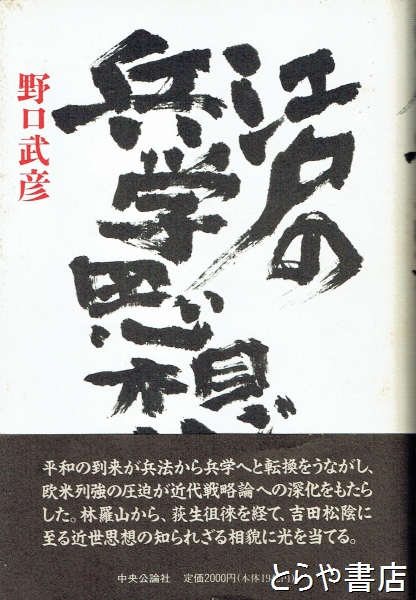 江戸の
兵学思想
野口武彦
平和の到来が兵法から兵学へと転換をうながし、
欧米列強の圧迫が近代戦略論への深化をもたら
した。林羅山から、荻生徂徠を経て、吉田松陰に
至る近世思想の知られざる相貌に光を当てる。
中央公論社 定価2000円(本体1942円)
とらや書店